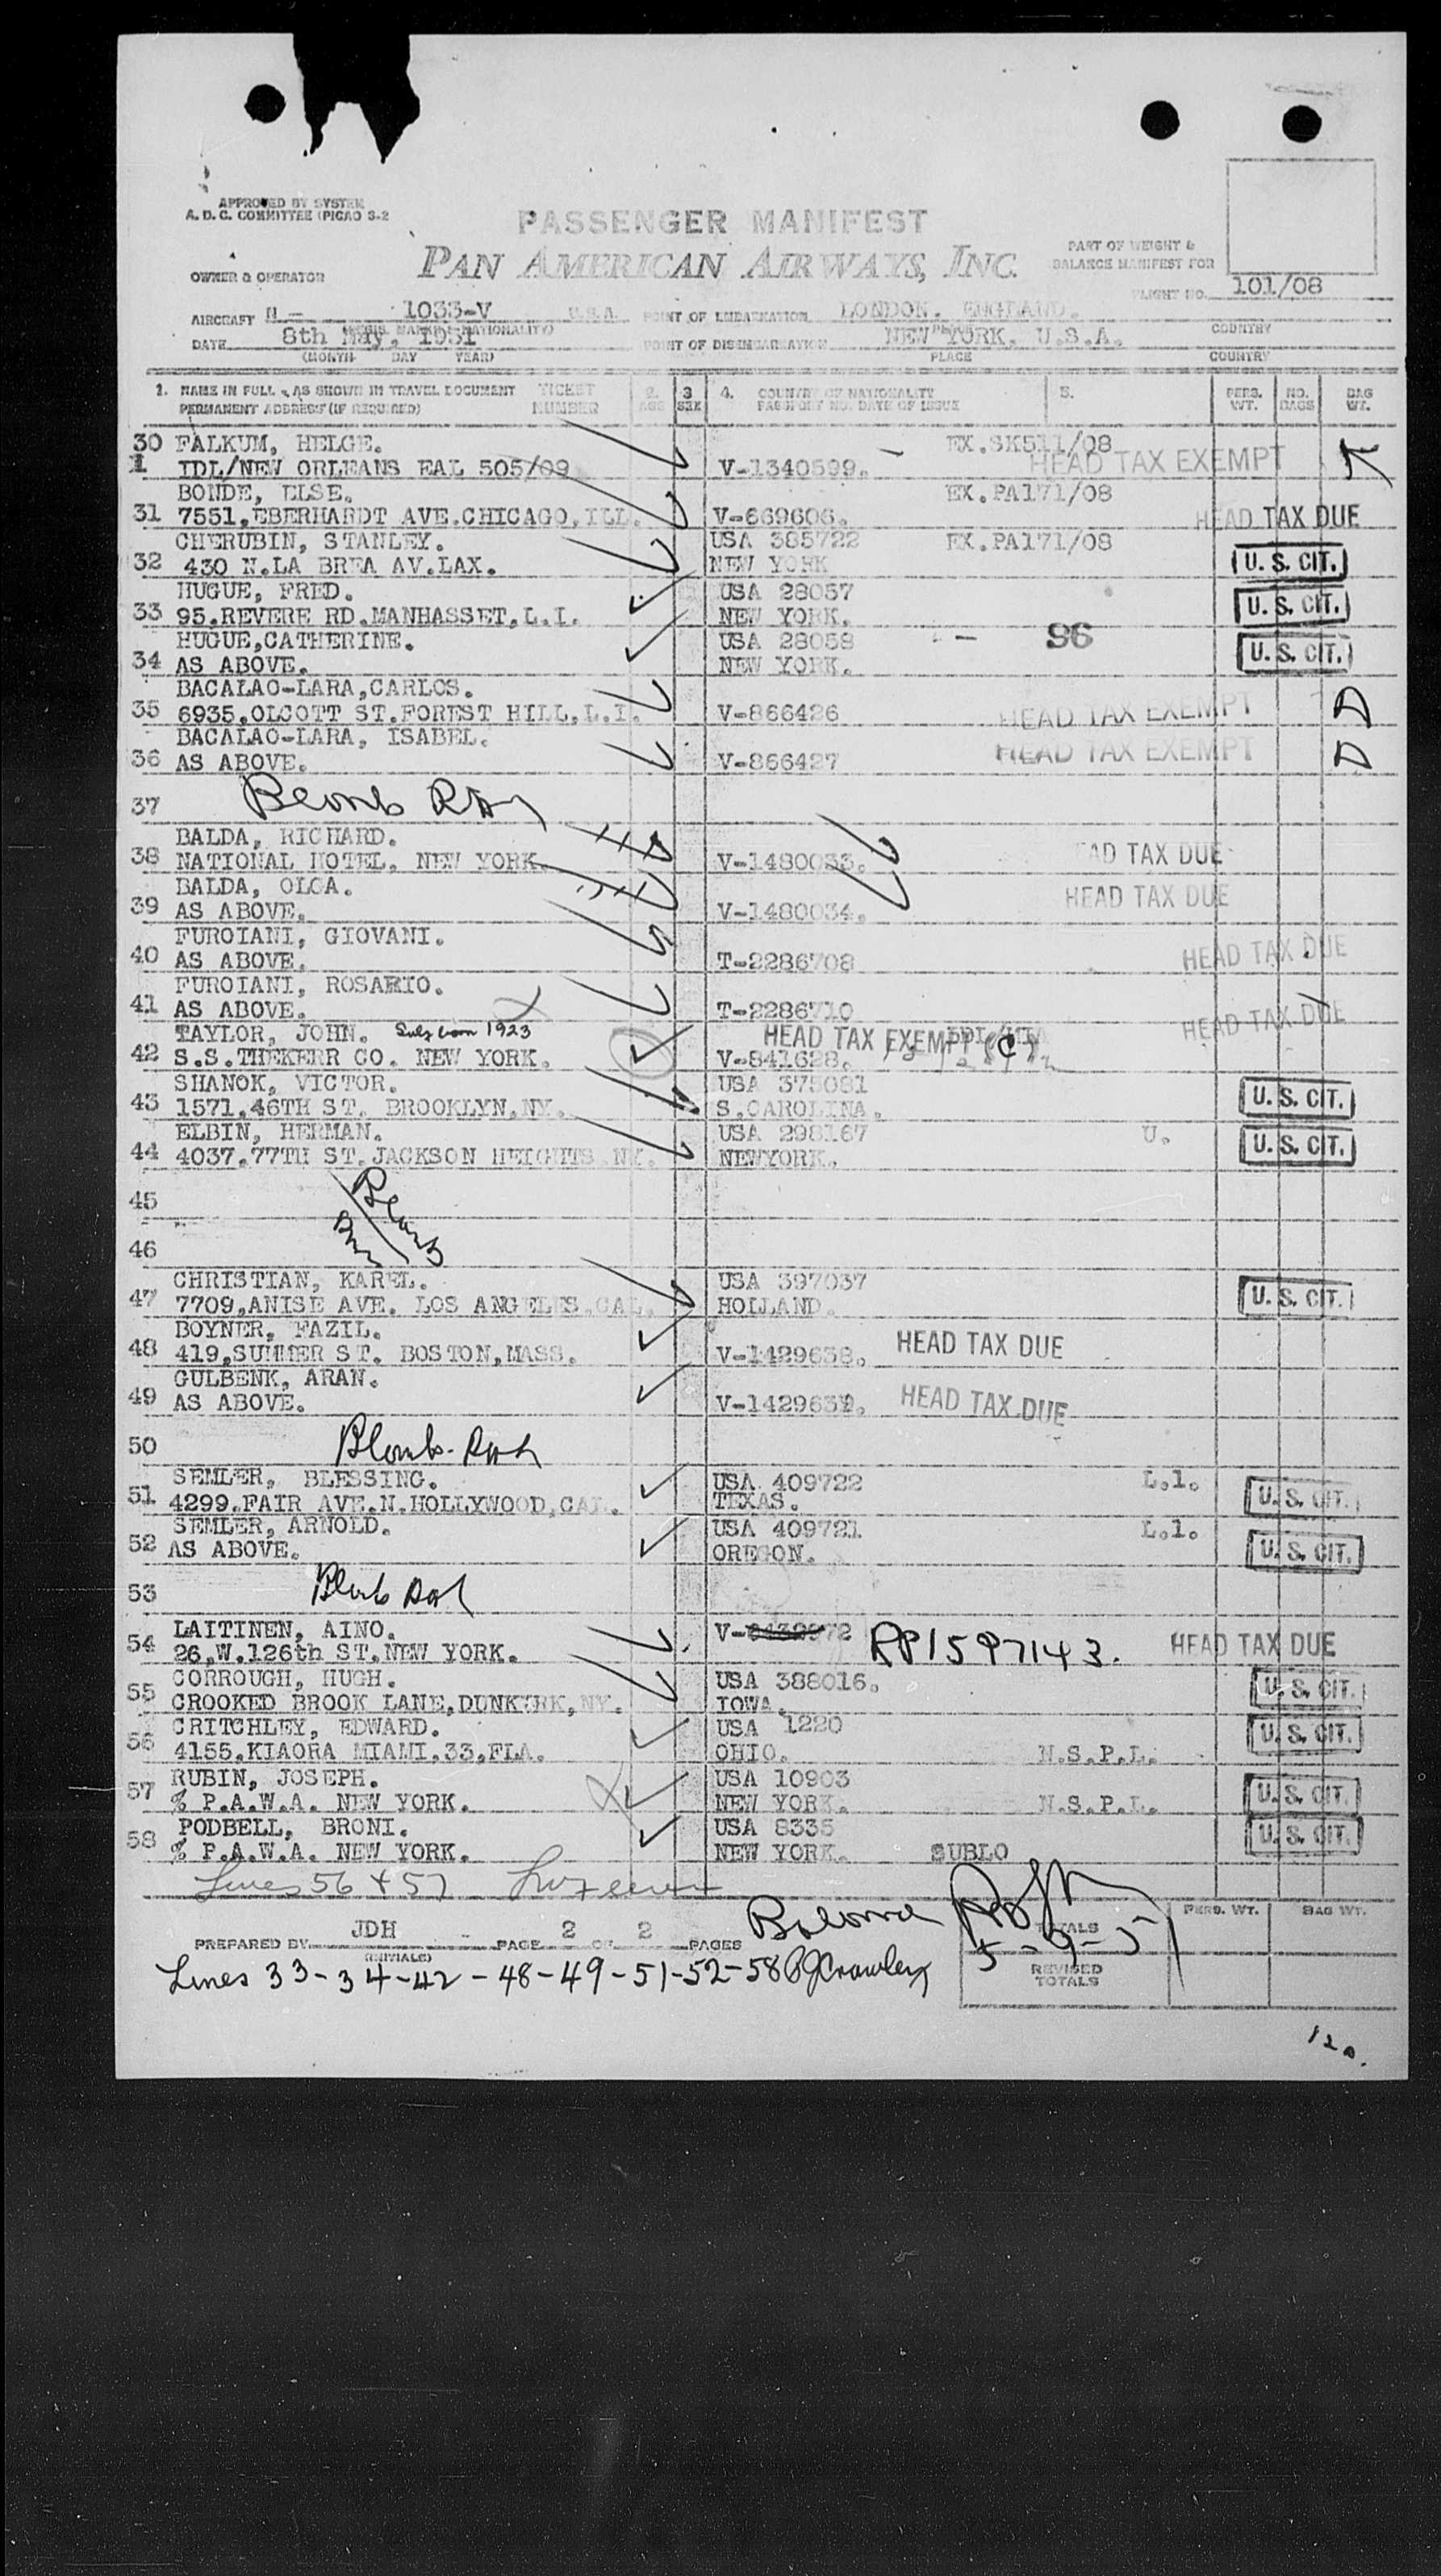 APPROVED BY SYSTEM
A. D. C. COMMITTEE (PICAO S-2
PASSENGER MANIFEST
PAN AMERICAN AIRWAYS, INC.
PART OF WEIGHT &
BALANCE MANIFEST FOR
OWNER & OPERATOR
FLIGHT NO. 101/08
AIRCRAFT N - 1033-V U.S.A. POINT OF EMBARKATION LONDON. ENGLAND.
DATE 8th May, 1951 POINT OF DISEMBARKATION NEW YORK. U.S.A. COUNTRY
(MONTH DAY YEAR) PLACE COUNTRY
1. NAME IN FULL, AS SHOWN IN TRAVEL DOCUMENT TICKET 2. 3 4. COUNTRY OF NATIONALITY 5. PERS. NO. BAG
PERMANENT ADDRESS (IF REQUIRED) NUMBER AGE SEX PASSPORT NO. DATE OF ISSUE WT. BAGS WT.
30 FALKUM, HELGE. EX.SK511/08
1 IDL/NEW ORLEANS EAL 505/09 V-1340599. HEAD TAX EXEMPT
BONDE, ELSE. EX.PA171/08
31 7551.EBERHARDT AVE.CHICAGO,ILL. V-669606. HEAD TAX DUE
CHERUBIN, STANLEY. USA 385722 EX.PA171/08
32 430 N.LA BREA AV.LAX. NEW YORK U. S. CIT.
HUGUE, FRED. USA 28057
33 95.REVERE RD.MANHASSET,L.I. NEW YORK. U. S. CIT.
HUGUE,CATHERINE. USA 28058 - 96
34 AS ABOVE. NEW YORK. U. S. CIT.
BACALAO-LARA,CARLOS.
35 6935.OLCOTT ST.FOREST HILL,L.I. V-866426 HEAD TAX EXEMPT D
BACALAO-LARA, ISABEL.
36 AS ABOVE. V-866427 HEAD TAX EXEMPT D
37
BALDA, RICHARD.
38 NATIONAL HOTEL. NEW YORK. V-1480033. HEAD TAX DUE
BALDA, OLGA.
39 AS ABOVE. V-1480034. HEAD TAX DUE
FUROIANI, GIOVANI.
40 AS ABOVE. T-2286708 HEAD TAX DUE
FUROIANI, ROSARIO.
41 AS ABOVE. T-2286710 HEAD TAX DUE
TAYLOR, JOHN. 1923 HEAD TAX EXEMPT (C)
42 S.S.THEKERR CO. NEW YORK. V-841628.
SHANOK, VICTOR. USA 375081
43 1571.46TH ST. BROOKLYN,NY. S.CAROLINA. U. S. CIT.
ELBIN, HERMAN. USA 298167 U.
44 4037.77TH ST.JACKSON HEIGHTS NY. NEWYORK. U. S. CIT.
45 Blank
46
CHRISTIAN, KAREL. USA 397037
47 7709.ANISE AVE. LOS ANGELES,CAL. HOLLAND. U. S. CIT.
BOYNER, FAZIL.
48 419.SUMMER ST. BOSTON,MASS. V-1429638. HEAD TAX DUE
GULBENK, ARAN.
49 AS ABOVE. HEAD TAX DUE
50
SEMLER, BLESSING. USA 409722 L.l.
51 4299.FAIR AVE.N.HOLLYWOOD,CAL. TEXAS. U. S. CIT.
SEMLER, ARNOLD. USA 409721 L.l.
52 AS ABOVE. OREGON. U. S. CIT.
53
LAITINEN, AINO. V-
54 26.W.126th ST.NEW YORK. RP1597143. HEAD TAX DUE
CORROUGH, HUGH. USA 388016.
55 CROOKED BROOK LANE,DUNKIRK,NY. IOWA. U. S. CIT.
CRITCHLEY, EDWARD. USA 1220
56 4155.KIAORA MIAMI.33,FLA. OHIO. N.S.P.L. U. S. CIT.
RUBIN, JOSEPH. USA 10903
57 % P.A.W.A. NEW YORK. NEW YORK. N.S.P.L. U. S. CIT.
PODBELL, BRONI. USA 8335
58 % P.A.W.A. NEW YORK. NEW YORK. SUBLO U. S. CIT.
Lines 56 + 57
PERS. WT. BAG WT.
PREPARED BY JDH PAGE 2 OF 2 PAGES TOTALS
(INITIALS)
Lines 33-34-42-48-49-51-52-58 PJCrawley
REVISED
TOTALS